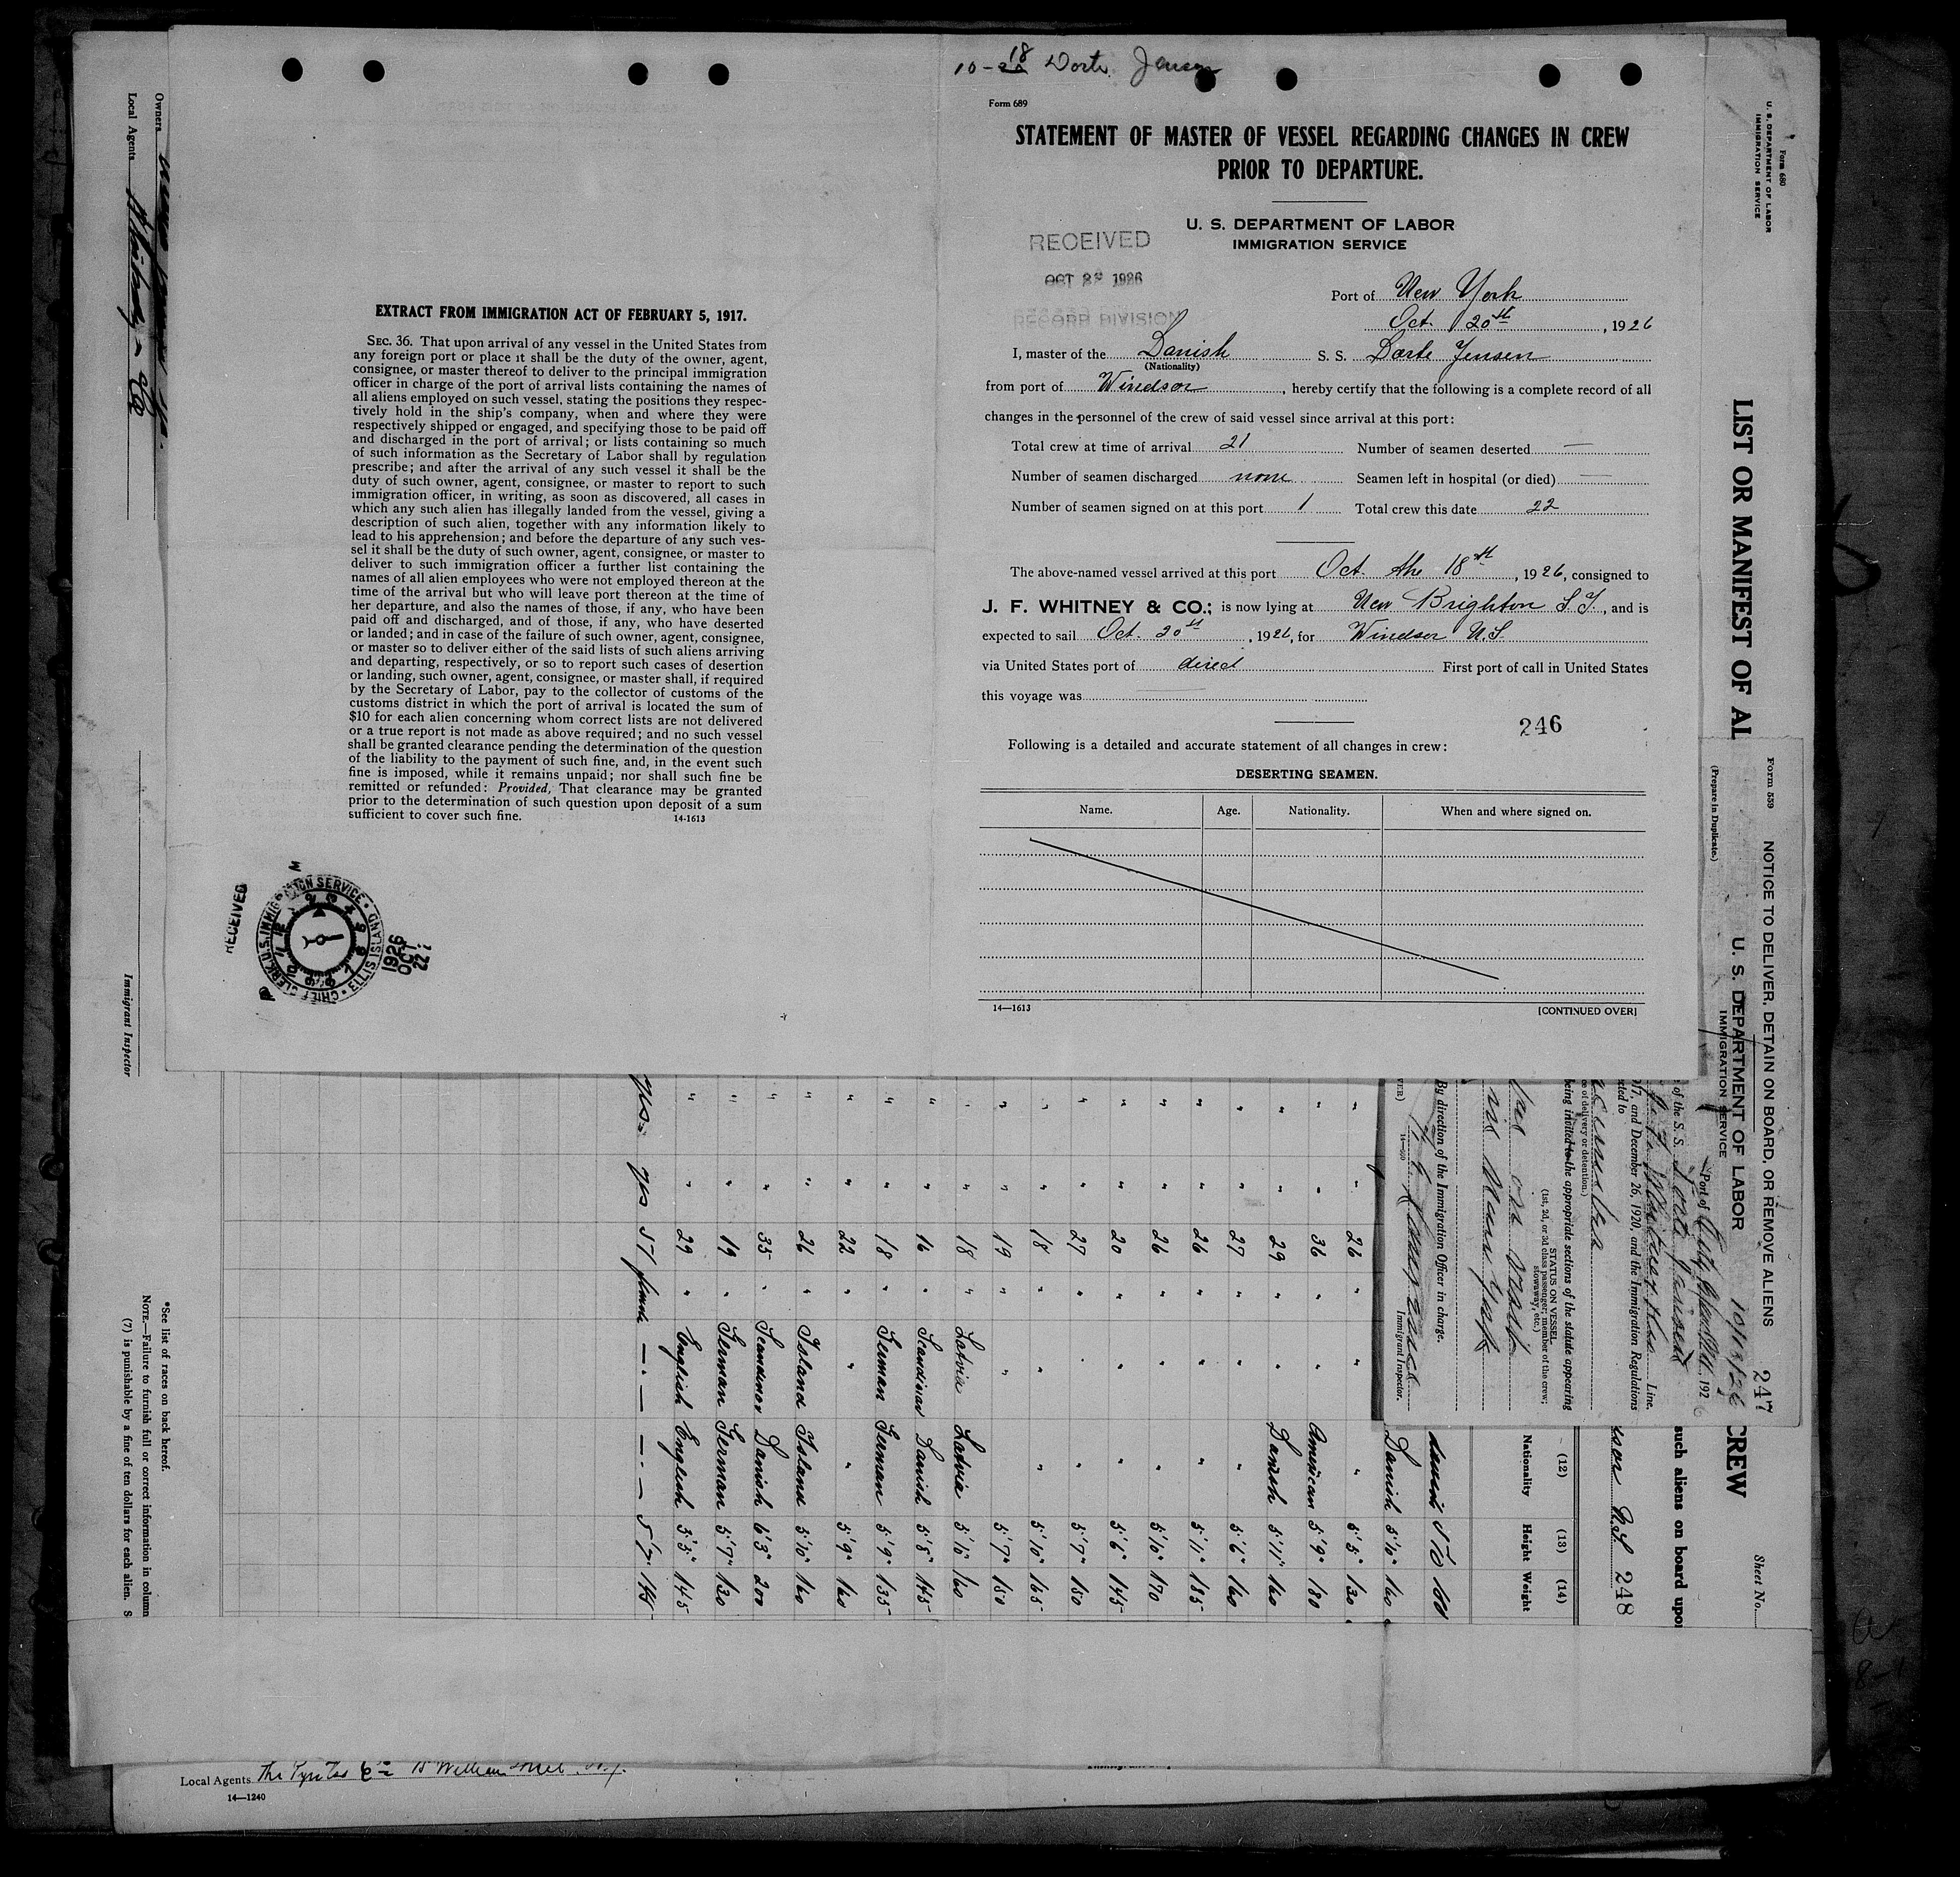 10-18 Dorte Jensen
Form 689
STATEMENT OF MASTER OF VESSEL REGARDING CHANGES IN CREW
PRIOR TO DEPARTURE.
U. S. DEPARTMENT OF LABOR
IMMIGRATION SERVICE
RECEIVED
OCT 22 1926
RECORD DIVISION
Port of New York
Oct. 20th, 1926
I, master of the Danish S. S. Dorte Jensen
(Nationality)
from port of Windsor, hereby certify that the following is a complete record of all
changes in the personnel of the crew of said vessel since arrival at this port:
Total crew at time of arrival 21 Number of seamen deserted —
Number of seamen discharged none Seamen left in hospital (or died) —
Number of seamen signed on at this port 1 Total crew this date 22
The above-named vessel arrived at this port Oct. the 18th, 1926, consigned to
J. F. WHITNEY & CO.; is now lying at New Brighton S.I., and is
expected to sail Oct. 20th, 1926, for Windsor N.S.
via United States port of direct First port of call in United States
this voyage was
246
Following is a detailed and accurate statement of all changes in crew:
DESERTING SEAMEN.
Name. Age. Nationality. When and where signed on.
14—1613 [CONTINUED OVER]
EXTRACT FROM IMMIGRATION ACT OF FEBRUARY 5, 1917.
SEC. 36. That upon arrival of any vessel in the United States from
any foreign port or place it shall be the duty of the owner, agent,
consignee, or master thereof to deliver to the principal immigration
officer in charge of the port of arrival lists containing the names of
all aliens employed on such vessel, stating the positions they respec-
tively hold in the ship's company, when and where they were
respectively shipped or engaged, and specifying those to be paid off
and discharged in the port of arrival; or lists containing so much
of such information as the Secretary of Labor shall by regulation
prescribe; and after the arrival of any such vessel it shall be the
duty of such owner, agent, consignee, or master to report to such
immigration officer, in writing, as soon as discovered, all cases in
which any such alien has illegally landed from the vessel, giving a
description of such alien, together with any information likely to
lead to his apprehension; and before the departure of any such ves-
sel it shall be the duty of such owner, agent, consignee, or master to
deliver to such immigration officer a further list containing the
names of all alien employees who were not employed thereon at the
time of the arrival but who will leave port thereon at the time of
her departure, and also the names of those, if any, who have been
paid off and discharged, and of those, if any, who have deserted
or landed; and in case of the failure of such owner, agent, consignee,
or master so to deliver either of the said lists of such aliens arriving
and departing, respectively, or so to report such cases of desertion
or landing, such owner, agent, consignee, or master shall, if required
by the Secretary of Labor, pay to the collector of customs of the
customs district in which the port of arrival is located the sum of
$10 for each alien concerning whom correct lists are not delivered
or a true report is not made as above required; and no such vessel
shall be granted clearance pending the determination of the question
of the liability to the payment of such fine, and, in the event such
fine is imposed, while it remains unpaid; nor shall such fine be
remitted or refunded: Provided, That clearance may be granted
prior to the determination of such question upon deposit of a sum
sufficient to cover such fine.
14-1613
RECEIVED
CHIEF CLERK U.S. IMMIGRATION SERVICE · ELLIS ISLAND
1926
OCT
22
Form 680
U. S. DEPARTMENT OF LABOR
IMMIGRATION SERVICE
LIST OR MANIFEST OF AL
CREW
Sheet No.
such aliens on board upon
N.S. 248
Form 559
(Prepare in Duplicate.)
NOTICE TO DELIVER, DETAIN ON BOARD, OR REMOVE ALIENS
247
U. S. DEPARTMENT OF LABOR
IMMIGRATION SERVICE
10/18/26
Port of
, 192
of the S. S. Dorte Jensen
Line.
17, and December 26, 1920, and the Immigration Regulations
of delivery or detention.)
being invited to the appropriate sections of the statute appearing
STATUS ON VESSEL
(1st, 2d, or 3d class passenger; member of the crew;
stowaway, etc.)
By direction of the Immigration Officer in charge.
Immigrant Inspector.
(12) (13) (14)
Nationality Height Weight
Danish 5'10" 160
26 " " " 5'5" 130
36 " " American 5'9" 180
29 " " Danish 5'11" 160
27 " " " 5'6" 160
26 " " " 5'11" 185
26 " " " 5'10" 170
20 " " " 5'6" 145
27 " " " 5'7" 150
18 " " " 5'10" 165
19 " " 5'7" 150
18 " Latvia Latvia 5'10" 160
16 " Scandinav Danish 5'8" 145
18 " German German 5'9" 135
22 " " " 5'9" 160
26 " Island Island 5'10" 160
35 " Scandinav Danish 6'3" 200
19 " German German 5'7" 130
29 " English English 5'5" 145
yes yes 57
*See list of races on back hereof.
NOTE.—Failure to furnish full or correct information in column
(7) is punishable by a fine of ten dollars for each alien. S
Owners
Local Agents
Immigrant Inspector
Local Agents The Pyrites Co
14—1240